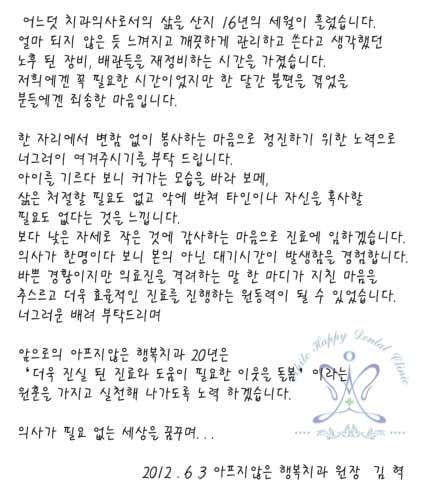 어느덧 치과의사로서의 삶을 산지 16년의 세월이 흘렀습니다.
얼마 되지 않은 듯 느껴지고 깨끗하게 관리하고 쓴다고 생각했던
노후 된 장비, 배관들을 재정비하는 시간을 가졌습니다.
저희에겐 꼭 필요한 시간이었지만 한 달간 불편을 겪었을
분들에겐 죄송한 마음입니다.
한 자리에서 변함 없이 봉사하는 마음으로 정진하기 위한 노력으로
너그러이 여겨주시기를 부탁 드립니다.
아이를 기르다 보니 커가는 모습을 바라 보메,
삶은 처절할 필요도 없고 악에 받쳐 타인이나 자신을 혹사할
필요도 없다는 것을 느낍니다.
보다 낮은 자세로 작은 것에 감사하는 마음으로 진료에 임하겠습니다.
의사가 한명이다 보니 본의 아닌 대기시간이 발생함을 경험합니다.
바쁜 경황이지만 의료진을 격려하는 말 한 마디가 지친 마음을
추스르고 더욱 효율적인 진료를 진행하는 원동력이 될 수 있었습니다.
너그러운 배려 부탁드리며
앞으로의 아프지않은 행복치과 20년은
'더욱 진실 된 진료와 도움이 필요한 이웃을 돌봄' 이라는
원훈을 가지고 실천해 나가도록 노력 하겠습니다.
의사가 필요 없는 세상을 꿈꾸며...
2012.6 3 아프지않은 행복치과 원장 김 혁
Happy Dental Clinic